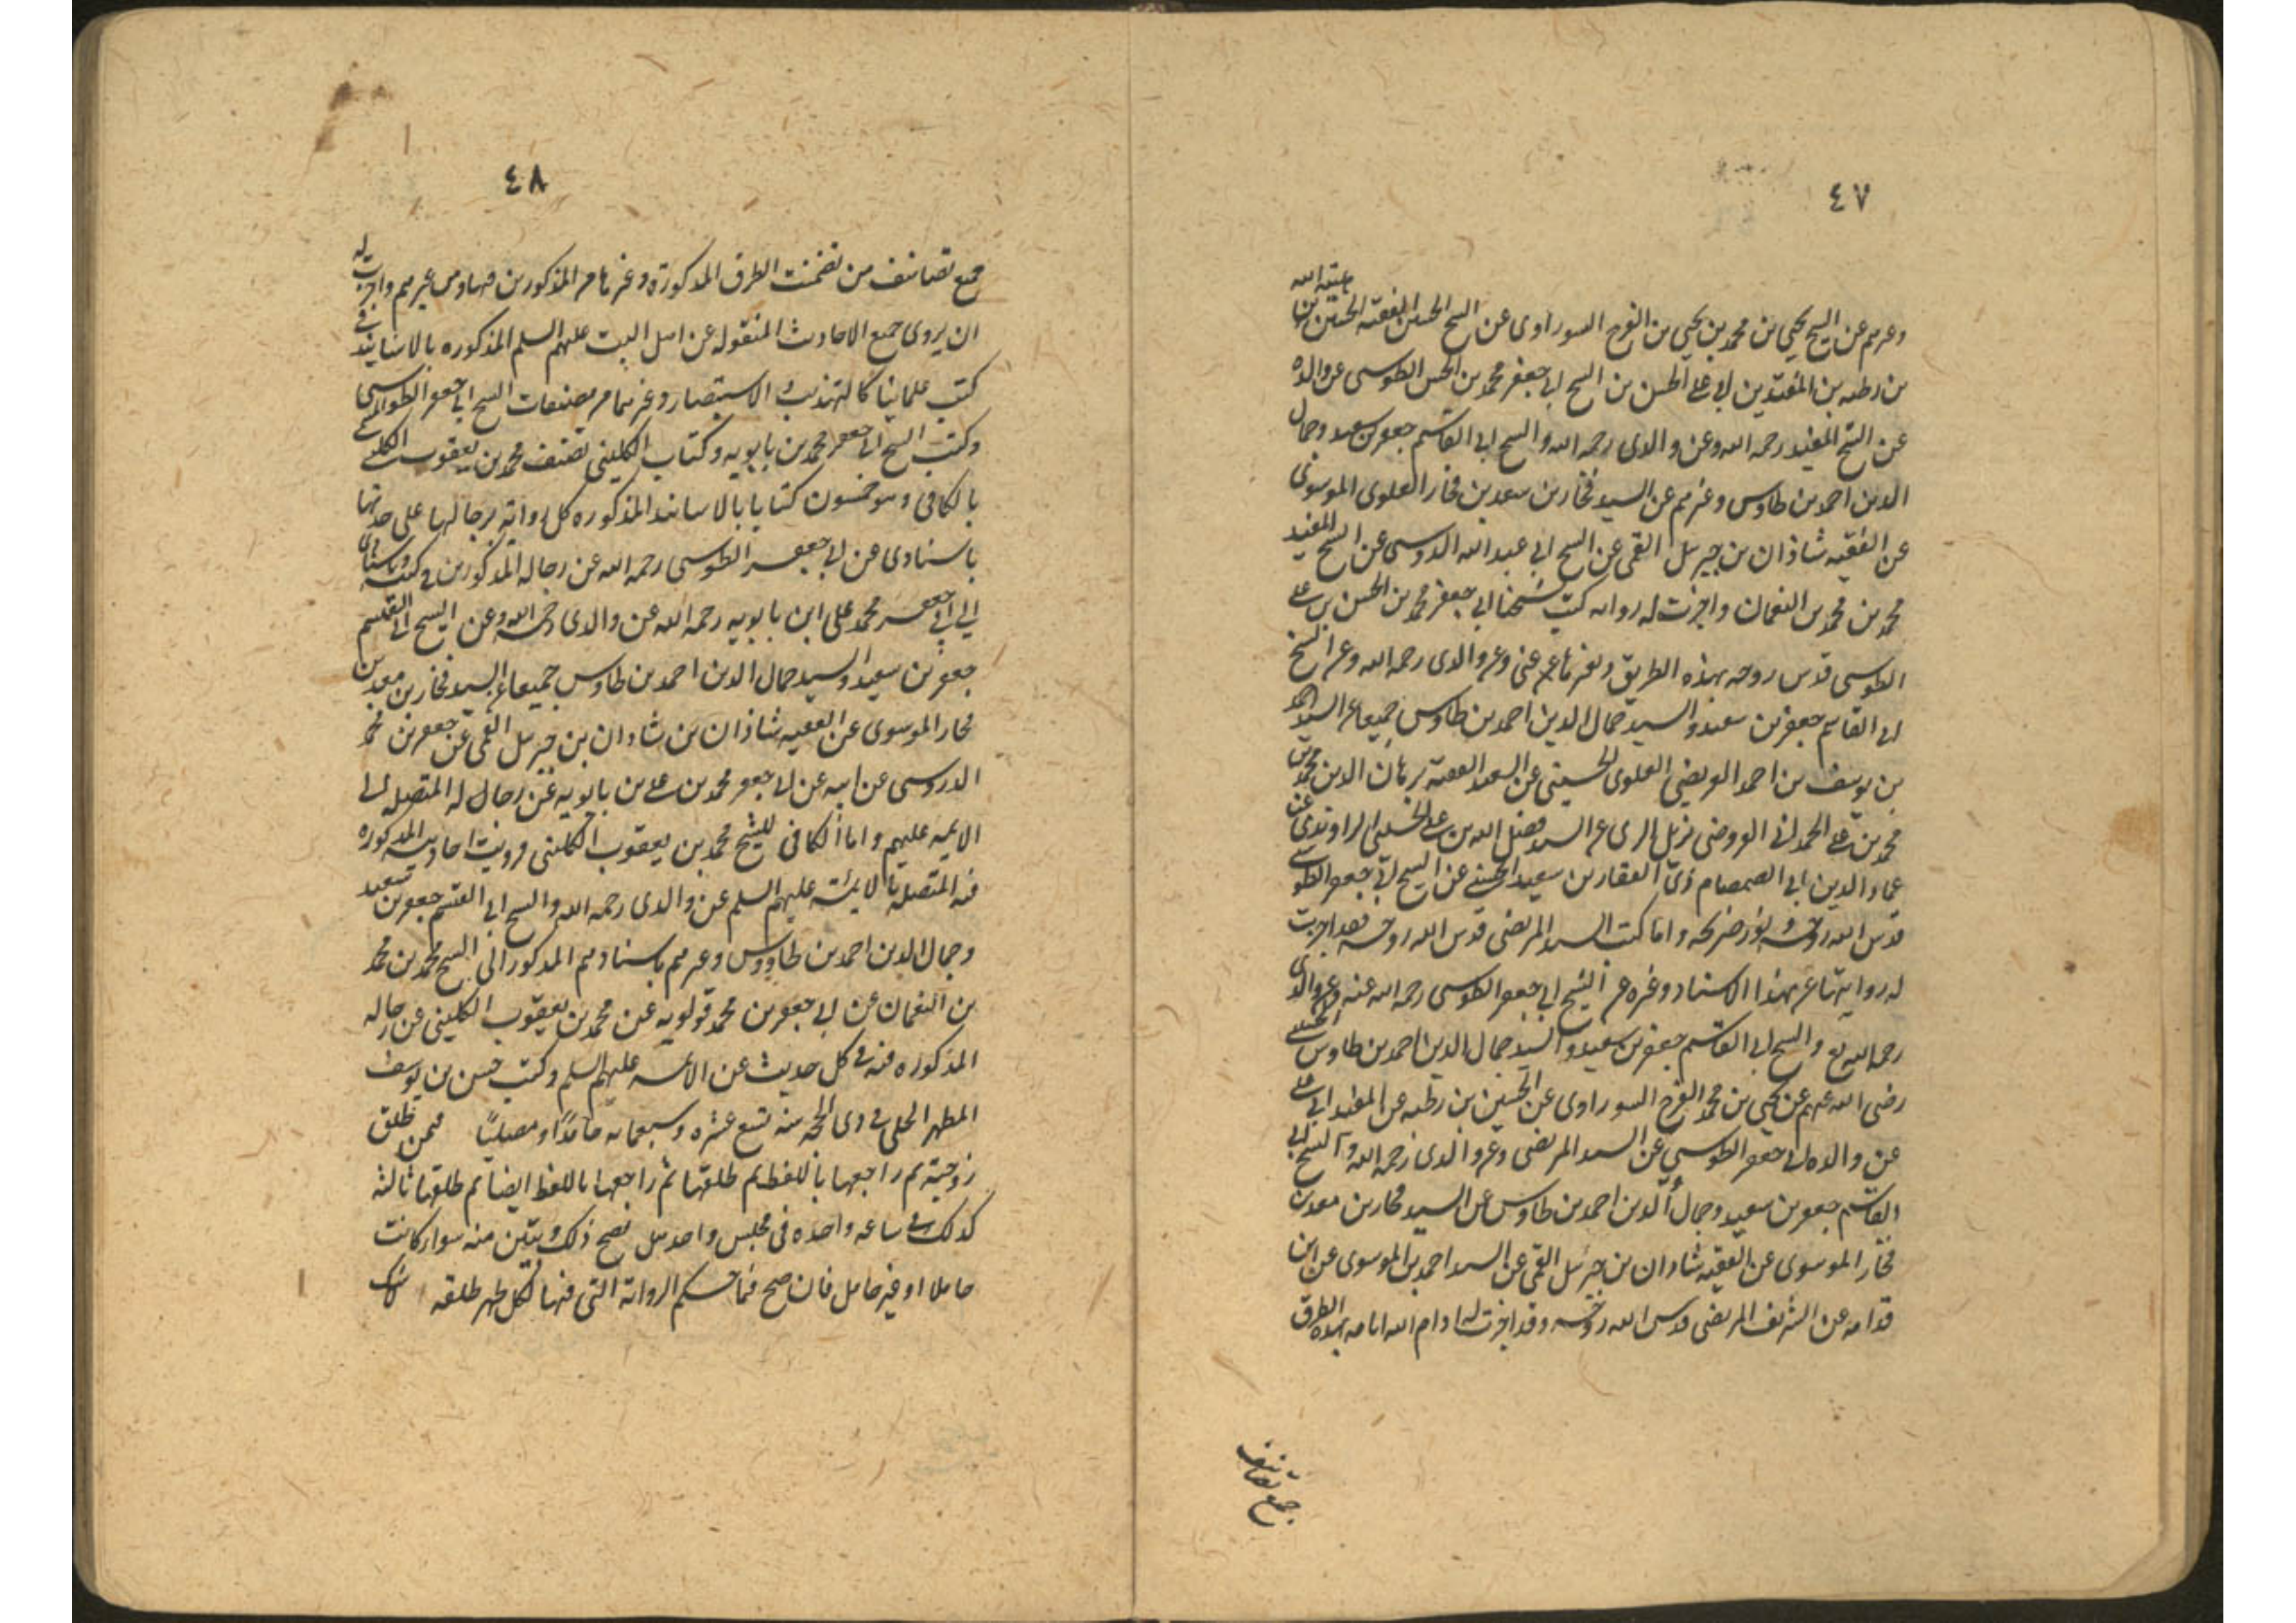 ٤٧
هبة الله
وغيرهم عن الشيخ يحيى بن محمد بن يحيى بن الفرج السوراوى عن الشيخ الفقيه الحسين بن
بن رطبه بن المفيد بن ابى على الحسن بن الشيخ ابى جعفر محمد بن الحسن الطوسى عن والده
عن الشيخ المفيد رحمه الله وعن والدى رحمه الله والشيخ ابى القاسم جعفر بن سعيد وجمال
الدين احمد بن طاوس وغيرهم عن السيد فخار بن معد بن فخار العلوى الموسوى
عن الفقيه شاذان بن جبرئيل القمى عن الشيخ ابى عبد الله الدوريستى عن الشيخ المفيد
محمد بن محمد بن النعمان واجزت له رواية كتب شيخنا ابى جعفر محمد بن الحسن بن على
الطوسى قدس روحه بهذه الطريق وبغيرها عنى وعن والدى رحمه الله وعن الشيخ
ابى القاسم جعفر بن سعيد والسيد جمال الدين احمد بن طاوس جميعا عن السيد احمد
بن يوسف بن احمد العريضى العلوى الحسينى عن الفقيه برهان الدين محمد بن
محمد بن على الحمدانى القزوينى نزيل الرى عن السيد فضل الله بن على الحسنى الراوندى عن
عماد الدين ابى الصمصام ذى الفقار بن سعيد الحسنى عن الشيخ ابى جعفر الطوسى
قدس الله روحه ونور ضريحه واما كتب السيد المرتضى قدس الله روحه فقد اجزت
له روايتها عن بهذا الاسناد وغيره عن الشيخ ابى جعفر الطوسى رحمه الله عنه وعن والدى
رحمه الله والشيخ ابى القاسم جعفر بن سعيد والسيد جمال الدين احمد بن طاوس الحسنى
رضى الله عنهم عن يحيى بن محمد الفرج السوراوى عن الحسين بن رطبه عن المفيد ابى على
عن والده ابى جعفر الطوسى عن السيد المرتضى وعن والدى رحمه الله والشيخ ابى
القاسم جعفر بن سعيد وجمال الدين احمد بن طاوس عن السيد فخار بن معد بن
فخار الموسوى عن الفقيه شاذان بن جبرئيل القمى عن السيد احمد بن الموسوى عن ابن
قدامه عن الشريف المرتضى قدس الله روحه وقد اجزت له ادام الله ايامه بهذه الطرق
جميع تصانيف
٤٨
جميع تصانيف من تضمنت الطرق المذكورة وغيرها من المذكورين فيها ومن غيرهم واجزت له
ان يروى جميع الاحاديث المنقوله عن اهل البيت عليهم السلم المذكوره بالاسانيد فى
كتب علمائنا كالتهذيب والاستبصار وغيرهما من مصنفات الشيخ ابى جعفر الطوسى
وكتب الشيخ ابى جعفر محمد بن بابويه وكتاب الكلينى تصنيف محمد بن يعقوب الكلينى المسمى
بالكافى وهو خمسون كتابا بالاسانيد المذكوره كل رواية برجالها على حدتها
باسنادى عن ابى جعفر الطوسى رحمه الله عن رجاله المذكورين فى كتبه وباسنادى
الى ابى جعفر محمد على ابن بابويه رحمه الله عن والدى رحمه الله وعن الشيخ ابى القسم
جعفر بن سعيد والسيد جمال الدين احمد بن طاوس جميعا عن السيد فخار بن معد بن
فخار الموسوى عن الفقيه شاذان بن شاذان بن جبرئيل القمى عن جعفر بن محمد
الدروسى عن ابيه عن ابى جعفر محمد بن على بن بابويه عن رجال له المتصله الى
الايمه عليهم واما الكافى للشيخ محمد بن يعقوب الكلينى فرويت احاديثه المذكوره
فيه المتصله بالايمة عليهم السلم عن والدى رحمه الله والشيخ ابى القسم جعفر بن سعيد
وجمال الدين احمد بن طاووس وغيرهم باسنادهم المذكور الى الشيخ محمد بن محمد
بن النعمان عن ابى جعفر بن محمد قولويه عن محمد بن يعقوب الكلينى عن رجاله
المذكوره فيه فى كل حديث عن الائمه عليهم السلم وكتب حسن بن يوسف
المطهر الحلى فى ذى الحجه سنه تسع عشره وسبعمايه حامدًا ومصليًا فيمن طلق
زوجته ثم راجعها باللفظ ثم طلقها ثم راجعها باللفظ ايضا ثم طلقها ثالثه
كذلك فى ساعه واحده فى مجلس واحد هل يصح ذلك وتبين منه سواء كانت
حاملا او غير حامل فان صح فما حكم الرواية التى فيها لكل طهر طلقه